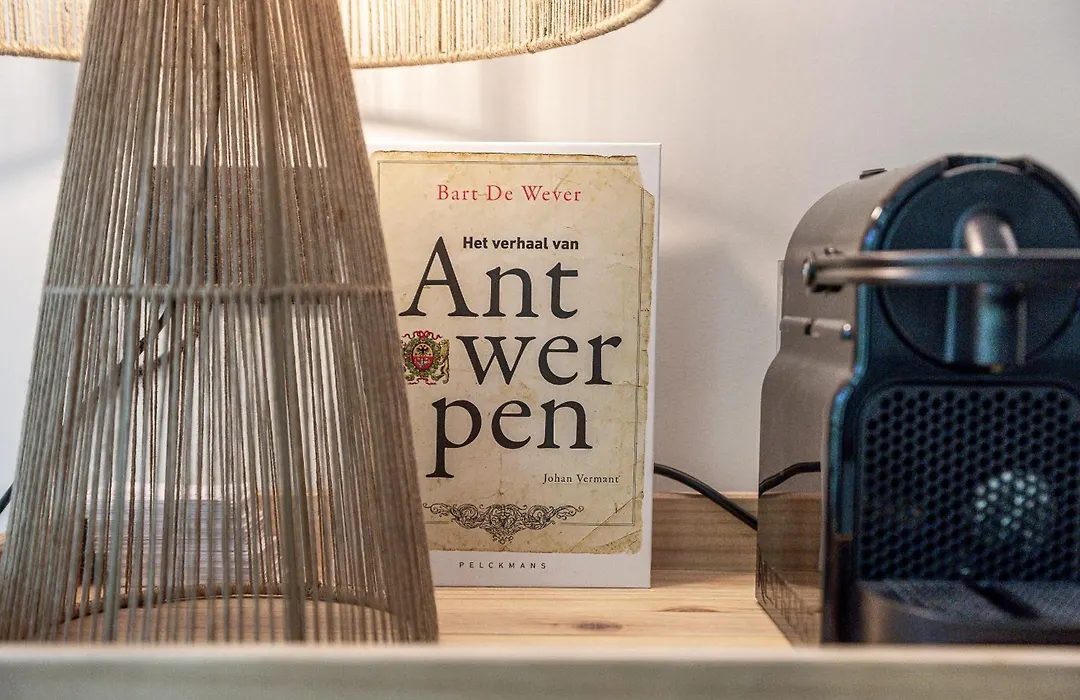 Bart De Wever
Het verhaal van
Ant
wer
pen
Johan Vermant
PELCKMANS